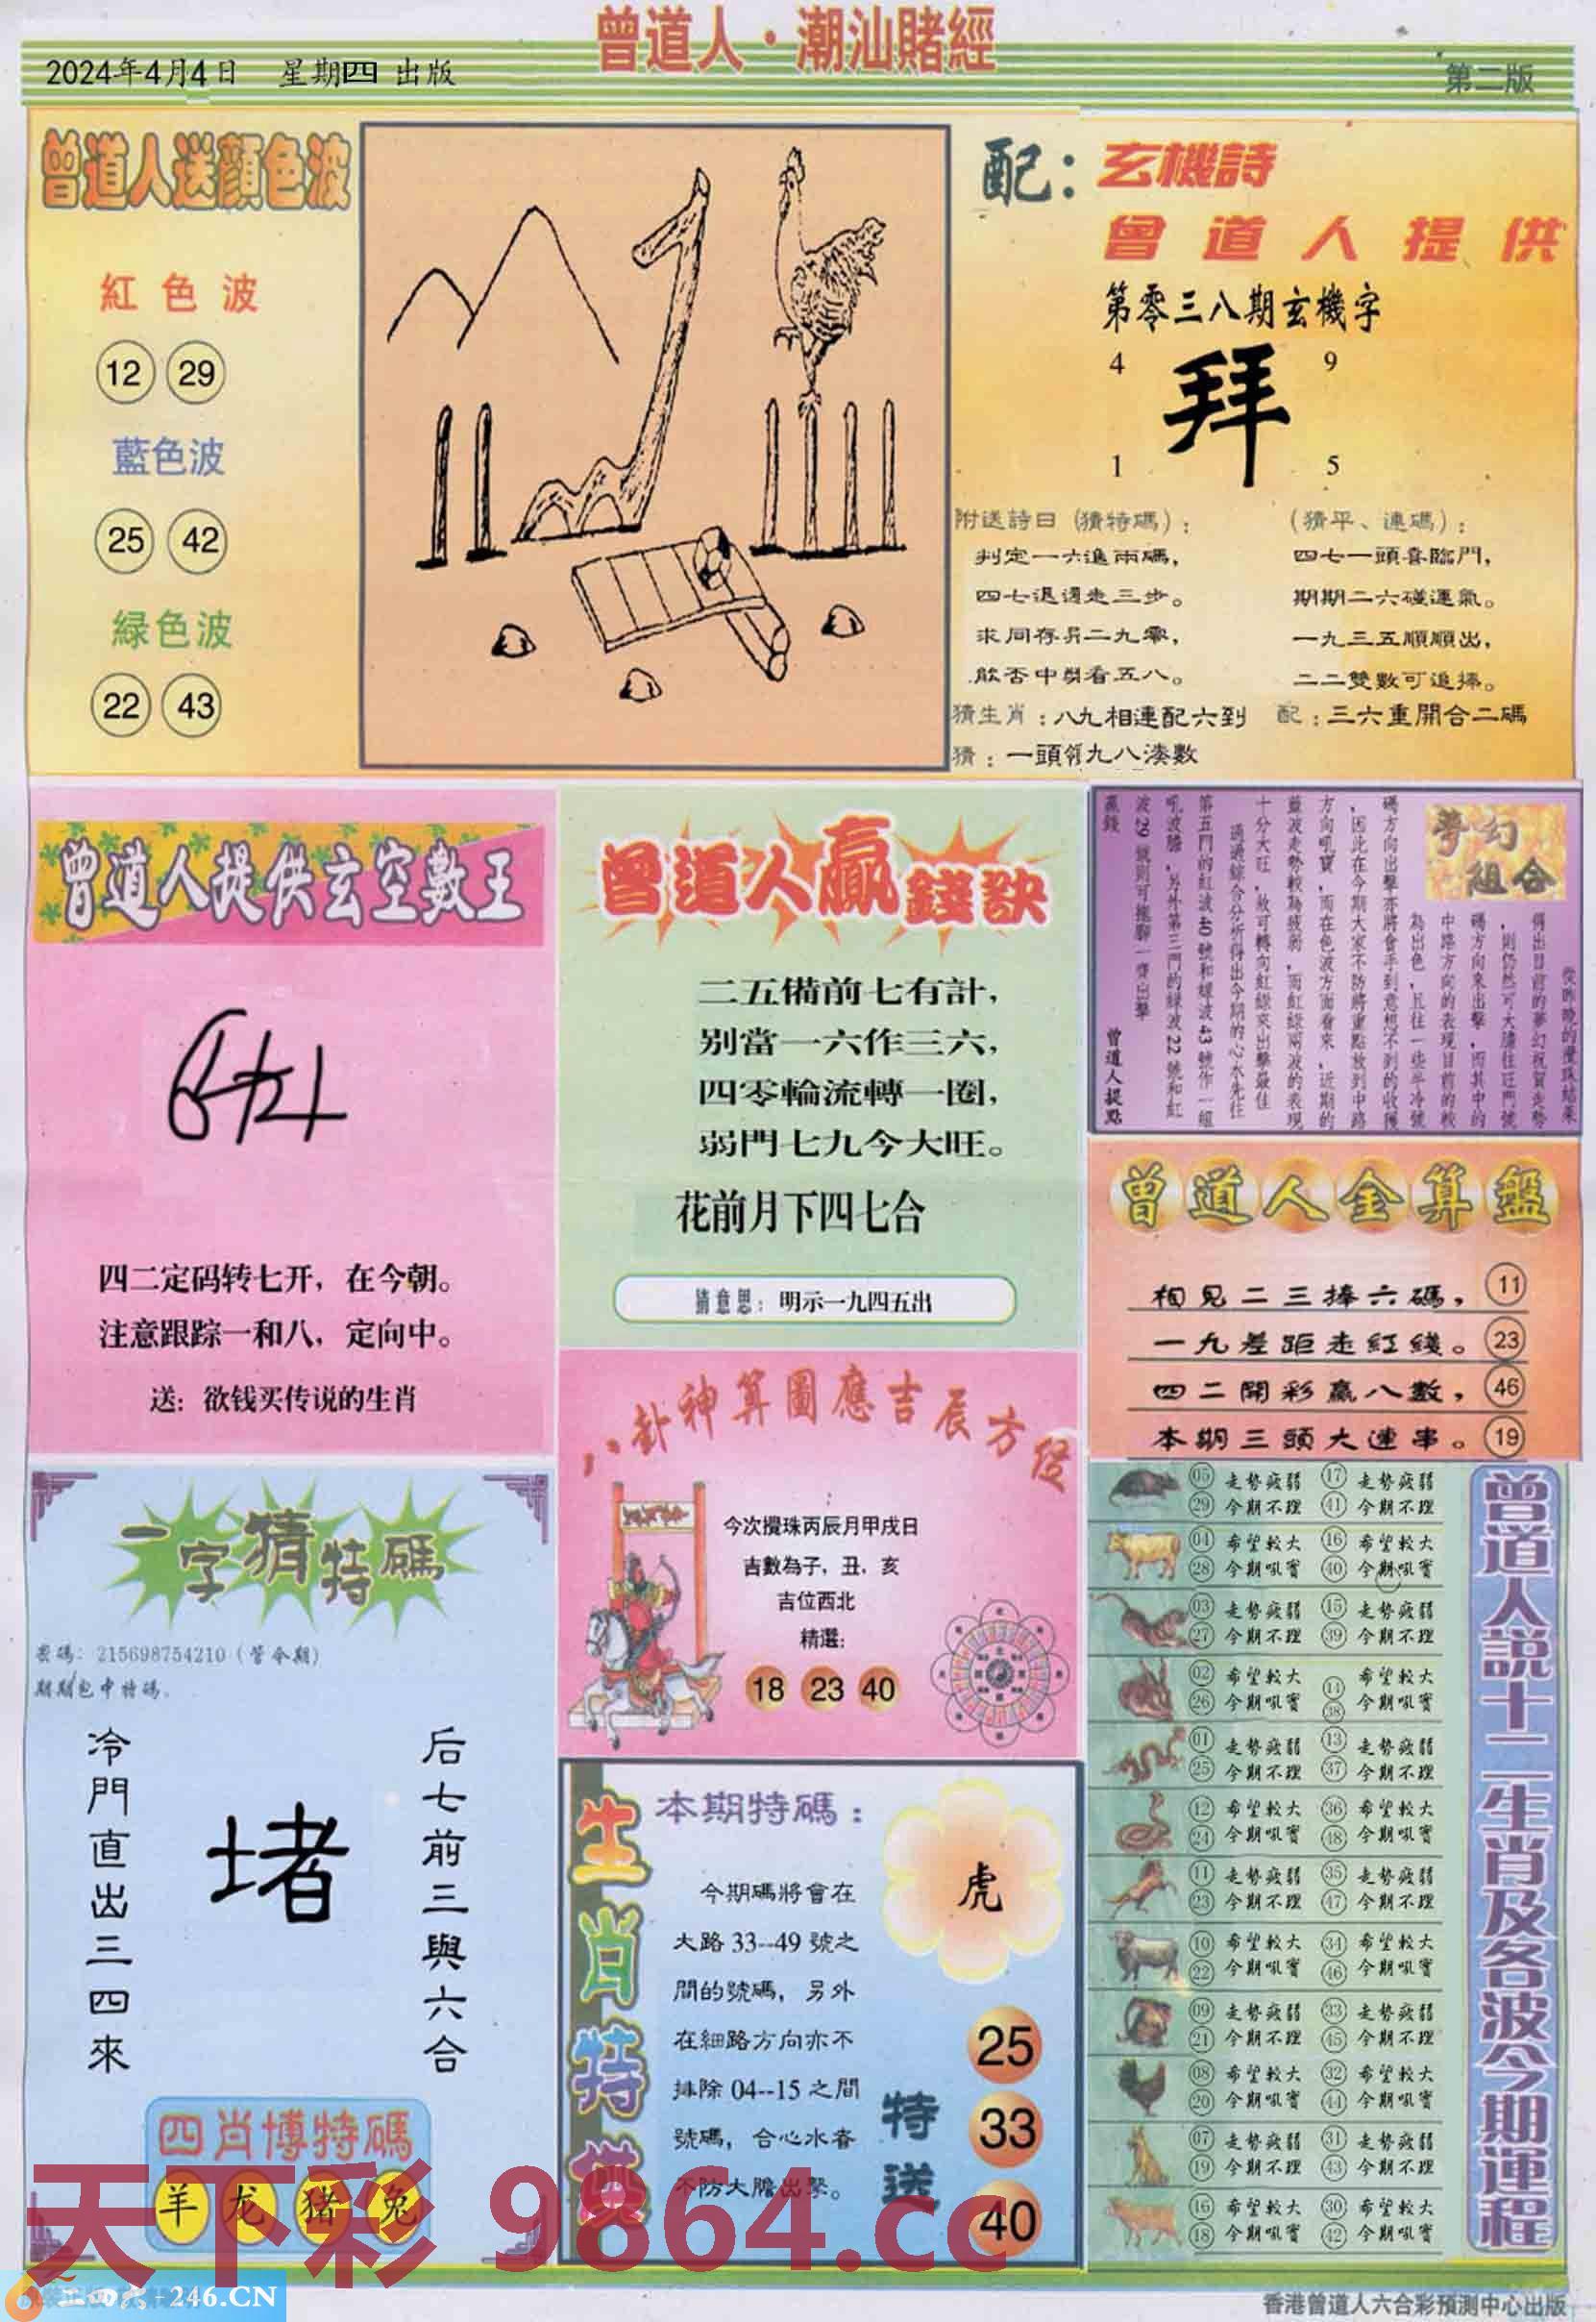 曾道人·潮汕賭經
2024年4月4日 星期四 出版
第二版
曾道人送顏色波
紅色波
12 29
藍色波
25 42
緑色波
22 43
配：玄機詩
曾道人提供
第零三八期玄機字
4 9
拜
1 5
附送詩曰（猜特碼）：
判定一六進兩碼，
四七退邊走三步。
求同存异二九零，
能否中奬看五八。
（猜平、連碼）：
四七一頭喜臨門，
期期二六碰運氣。
一九三五順順出，
二二雙數可追捧。
猜生肖：八九相連配六到
配：三六重開合二碼
猜：一頭領九八湊數
曾道人提供玄空數王
四二定码转七开，在今朝。
注意跟踪一和八，定向中。
送：欲钱买传说的生肖
曾道人贏錢訣
二五備前七有計，
别當一六作三六，
四零輪流轉一圈，
弱門七九今大旺。
花前月下四七合
猜意思：明示一九四五出
夢幻
組合
碼方向出擊亦將會手到意想不到的收獲
，因此在今期大家不防將重點放到中路
方向吼寶，而在色波方面看來，近期的
藍波走勢較為疲弱，而紅緑兩波的表現
十分大旺，故可轉向紅緑來出擊最佳
通過綜合分析得出今期的心水先往
第五門的紅波40號和緑波43號作一組
吼波膽，另外第三門的緑波22號和紅
波29號則可攜脚一齊出擊
贏錢
曾道人提點
曾道人金算盤
相見二三捧六碼， 11
一九差距走紅綫。 23
四二開彩贏八數， 46
本期三頭大連串。 19
八卦神算圖應吉辰方位
今次攪珠丙辰月甲戌日
吉數為子，丑，亥
吉位西北
精選：
18 23 40
一字猜特碼
密碼：215698754210（管令期）
期期包中特碼.
冷門直出三四來
堵
后七前三與六合
四肖博特碼
羊 龙 猪 兔
生肖特碼
本期特碼：
今期碼將會在
大路33--49號之
間的號碼，另外
在細路方向亦不
排除04--15之間
號碼，合心水者
不防大膽出擊。
虎
特送
25
33
40
曾道人説十二生肖及各波今期運程
05 走勢疲弱 17 走勢疲弱
29 今期不理 41 今期不理
04 希望較大 16 希望較大
28 今期吼實 40 今期吼實
03 走勢疲弱 15 走勢疲弱
27 今期不理 39 今期不理
02 希望較大 14 希望較大
26 今期吼實 38 今期吼實
01 走勢疲弱 13 走勢疲弱
25 今期不理 37 今期不理
12 希望較大 36 希望較大
24 今期吼實 48 今期吼實
11 走勢疲弱 35 走勢疲弱
23 今期不理 47 今期不理
10 希望較大 34 希望較大
22 今期吼實 46 今期吼實
09 走勢疲弱 33 走勢疲弱
21 今期不理 45 今期不理
08 希望較大 32 希望較大
20 今期吼實 44 今期吼實
07 走勢疲弱 31 走勢疲弱
19 今期不理 43 今期不理
16 希望較大 30 希望較大
18 今期吼實 42 今期吼實
天下彩 9864.cc
二四六-246.CN
香港曾道人六合彩預測中心出版